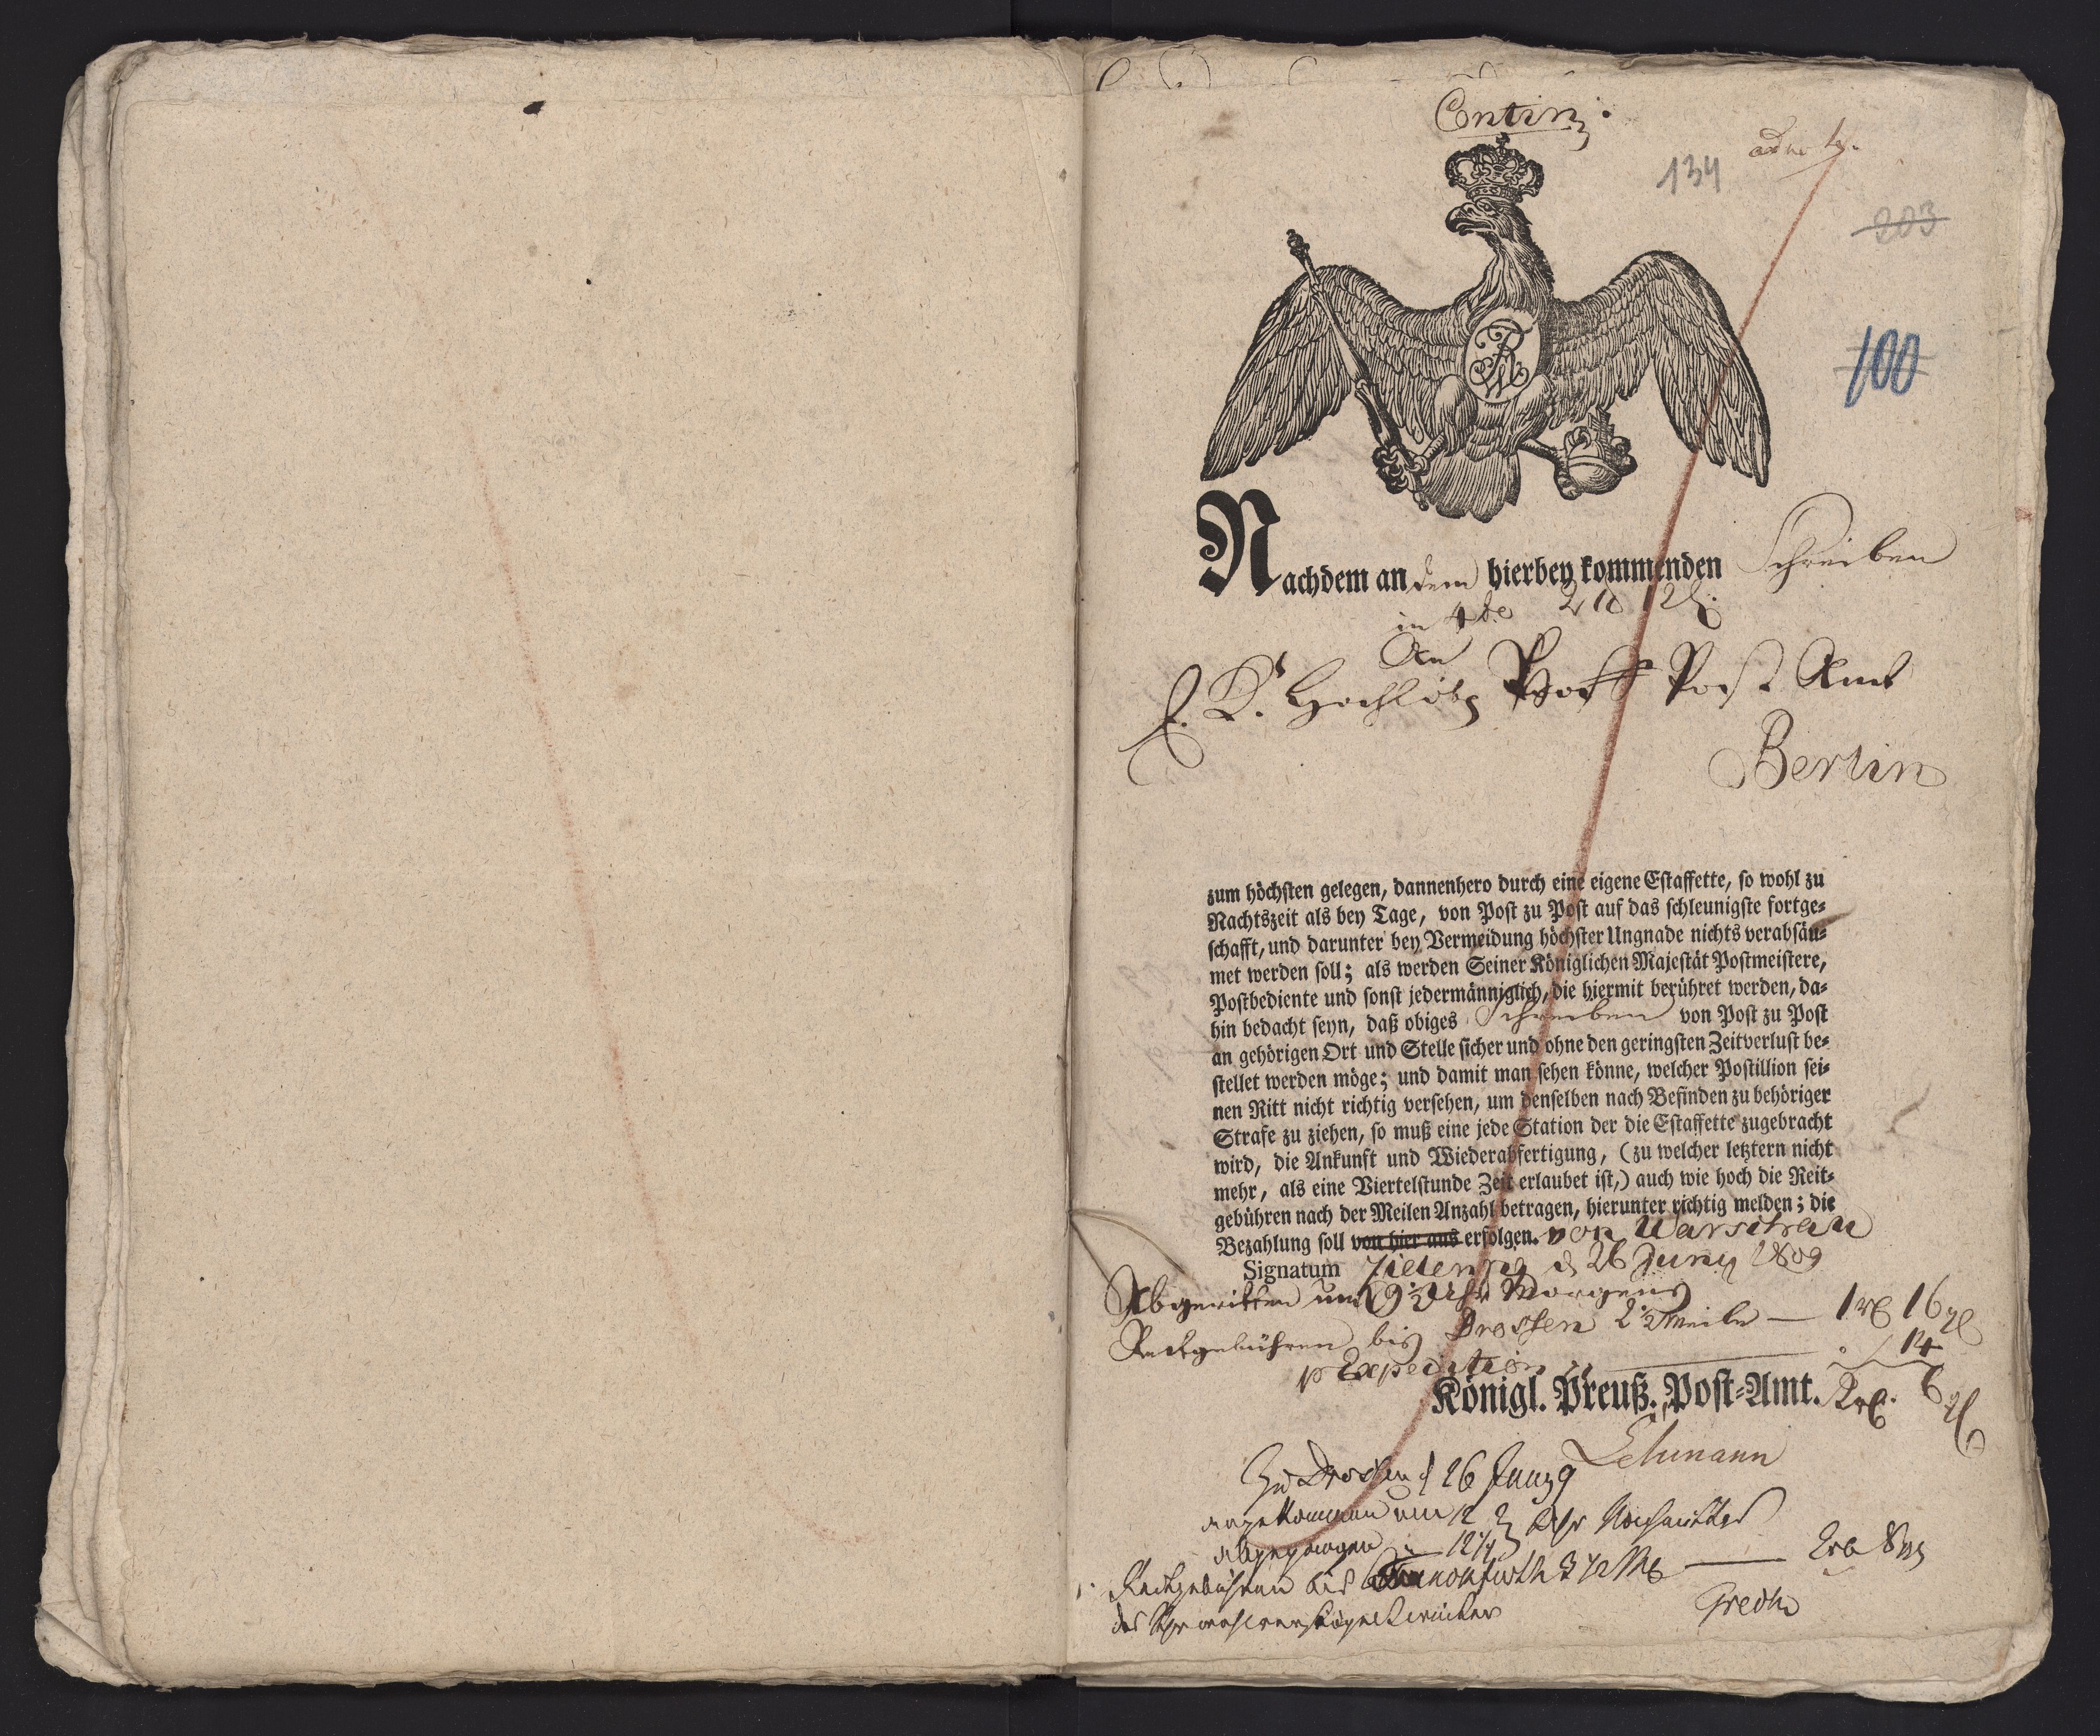 Contin:
134
203
100
Nachdem an dem hierbey kommenden Schreiben
in 4to
An
E. K. Hochlöbl Hoff Post Amt
Berlin
zum höchsten gelegen, dannenhero durch eine eigene Estaffette, so wohl zu
Nachtszeit als bey Tage, von Post zu Post auf das schleunigste fortge-
schafft, und darunter bey Vermeidung höchster Ungnade nichts verabsäu-
met werden soll; als werden Seiner Königlichen Majestät Postmeistere,
Postbediente und sonst jedermänniglich, die hiermit berühret werden, da-
hin bedacht seyn, daß obiges Schreiben von Post zu Post
an gehörigen Ort und Stelle sicher und ohne den geringsten Zeitverlust be-
stellet werden möge; und damit man sehen könne, welcher Postillion sei-
nen Ritt nicht richtig versehen, um denselben nach Befinden zu behöriger
Strafe zu ziehen, so muß eine jede Station der die Estaffette zugebracht
wird, die Ankunft und Wiederabfertigung, (zu welcher letztern nicht
mehr, als eine Viertelstunde Zeit erlaubet ist,) auch wie hoch die Reit-
gebühren nach der Meilen Anzahl betragen, hierunter richtig melden; die
Bezahlung soll von hier aus erfolgen. von Warschau
Signatum Zielenzig d 26 Juny 1809
Abgeritten um 9 1/2 Uhr Morgens
Reitgebühren bis Drossen 2 1/2 Meile — 1 rl 16 gl
p Expedition — 14
Königl. Preuß. Post-Amt. 2 rl. 6 gl
Lehmann
Zu Drossen d 26 Juny 9
angekommen um 12 Uhr
abgegangen 12 1/4
Reitgebühren bis — 2 rl 8 gl